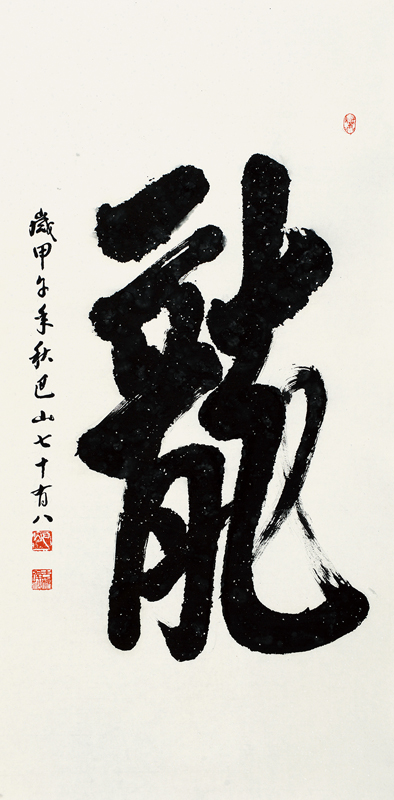 龍
歲甲午年秋巴山七十有八